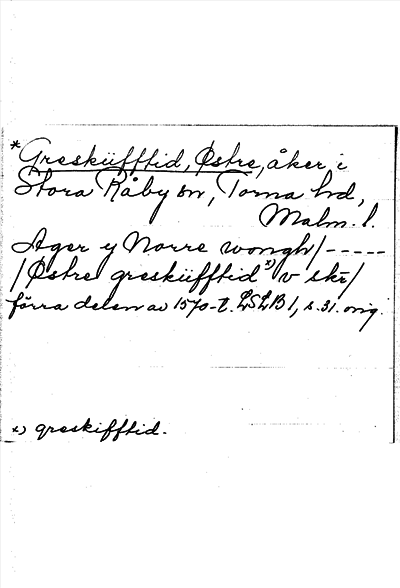 *Gresküfftid, Østre, åker i
Stora Råby sn, Torna hd,
Malm. l.
Ager y Norre wongh/-----
/Østre gresküfftid x) v skr/
förra delen av 1570-t. LSLB 1, s. 31. orig.
x) greskifftid.